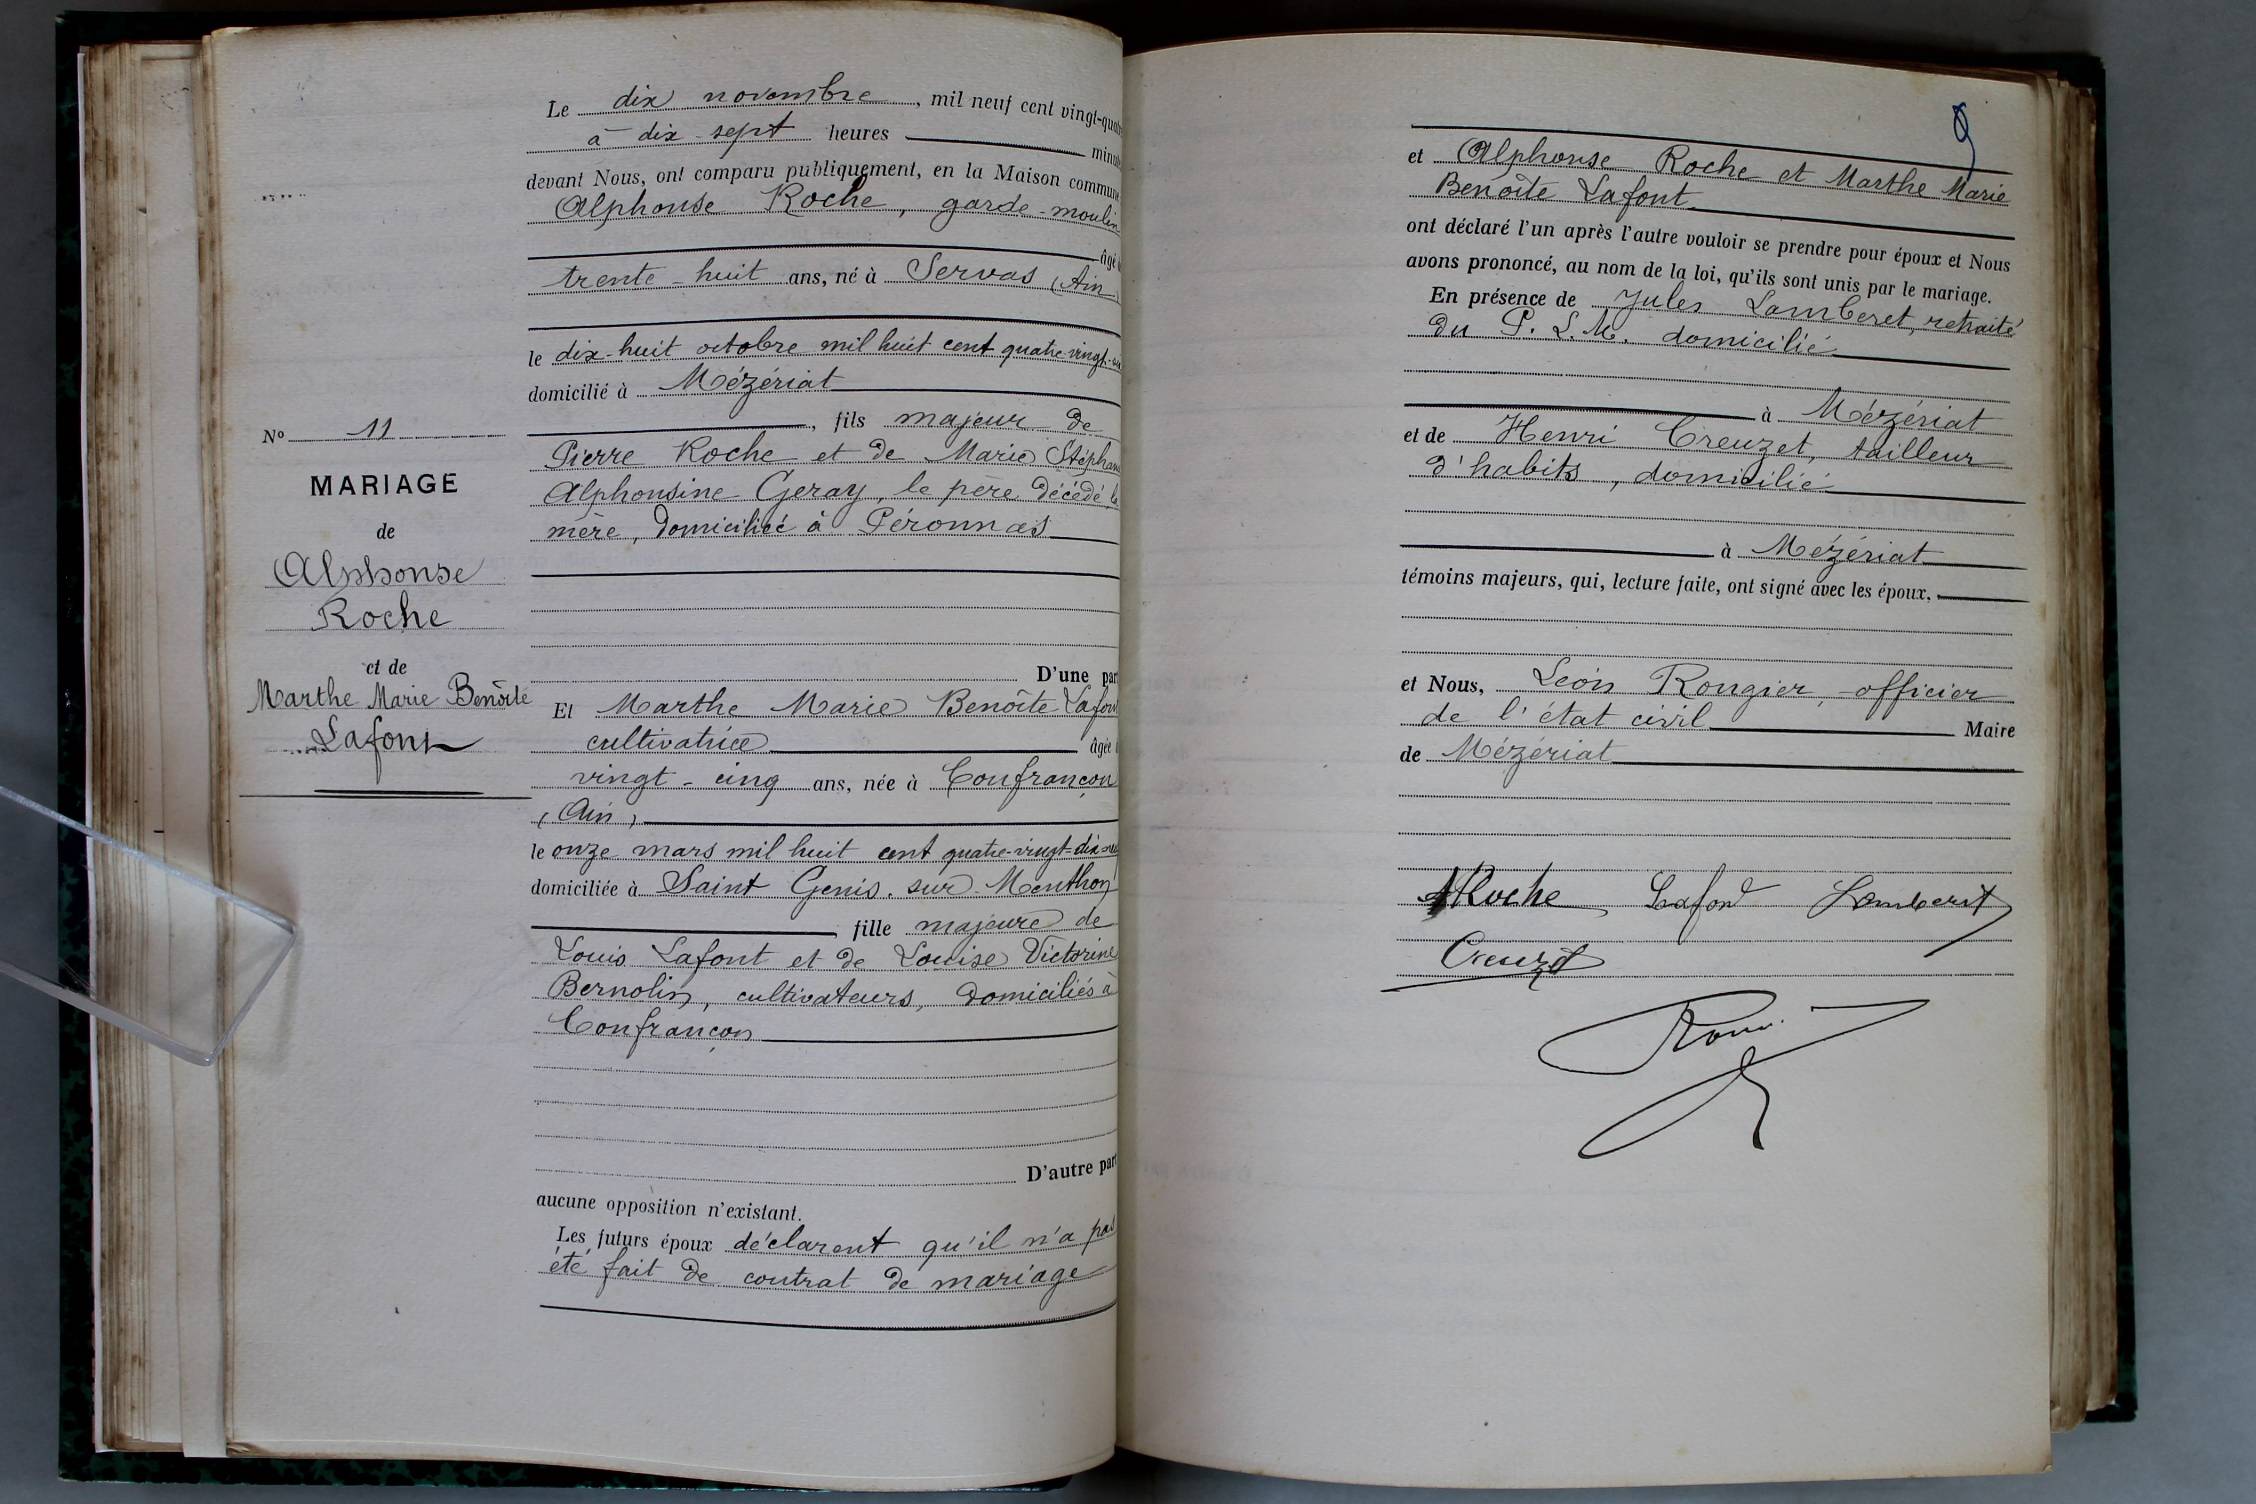 N° 11
MARIAGE
de
Alphonse
Roche
et de
Marthe Marie Benoîte
Lafont
Le dix novembre, mil neuf cent vingt-quat
à dix-sept heures minut
devant Nous, ont comparu publiquement, en la Maison commune
Alphonse Roche, garde-moulin
âgé
trente-huit ans, né à Servas (Ain)
le dix-huit octobre mil huit cent quatre-vingt-
domicilié à Mézériat
, fils majeur de
Pierre Roche et de Marie Stéphan
Alphonsine Geray, le père décédé, la
mère, domiciliée à Péronnas
D'une par
Et Marthe Marie Benoîte Lafont
cultivatrice âgée
vingt-cinq ans, née à Confrançon
(Ain)
le onze mars mil huit cent quatre-vingt-dix-neu
domiciliée à Saint Genis-sur-Menthon
, fille majeure de
Louis Lafont et de Louise Victorine
Bernolin, cultivateurs, domiciliés à
Confrançon
D'autre part
aucune opposition n'existant.
Les futurs époux déclarent qu'il n'a pas
été fait de contrat de mariage
9
et Alphonse Roche et Marthe Marie
Benoîte Lafont
ont déclaré l'un après l'autre vouloir se prendre pour époux et Nous
avons prononcé, au nom de la loi, qu'ils sont unis par le mariage.
En présence de Jules Lamberet, retraité
du P. L. M. domicilié
à Mézériat
et de Henri Creuzet, tailleur
d'habits, domicilié
à Mézériat
témoins majeurs, qui, lecture faite, ont signé avec les époux,
et Nous, Léon Rongier, officier
de l'état civil Maire
de Mézériat
ARoche Lafont Lamberet
Creuzet